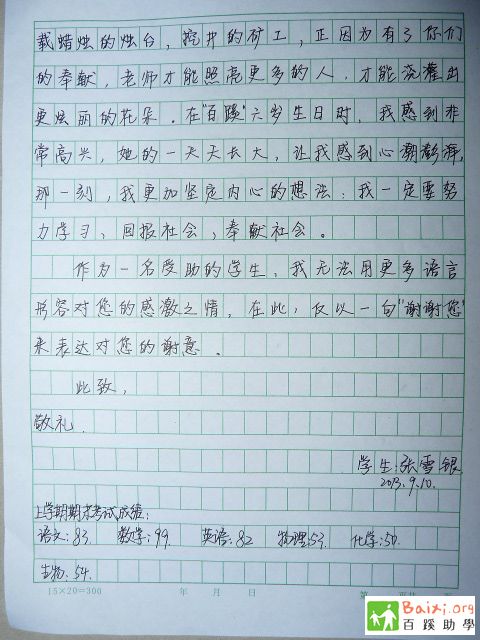 载蜡烛的烛台，挖井的矿工，正因为有了你们
的奉献，老师才能照亮更多的人，才能浇灌出
更炫丽的花朵。在"百蹊"六岁生日时，我感到非
常高兴，她的一天天长大，让我感到心潮澎湃，
那一刻，我更加坚定内心的想法：我一定要努
力学习、回报社会，奉献社会。
作为一名受助的学生，我无法用更多语言
形容对您的感激之情，在此，仅以一句"谢谢您"
来表达对您的谢意。
此致，
敬礼.
学生:张雪银
2013.9.10.
上学期期末考试成绩：
语文:83. 数学:99. 英语:82 物理:53. 化学:50.
生物:54.
15×20=300 年 月 日 第
Baixi.org
百蹊助學